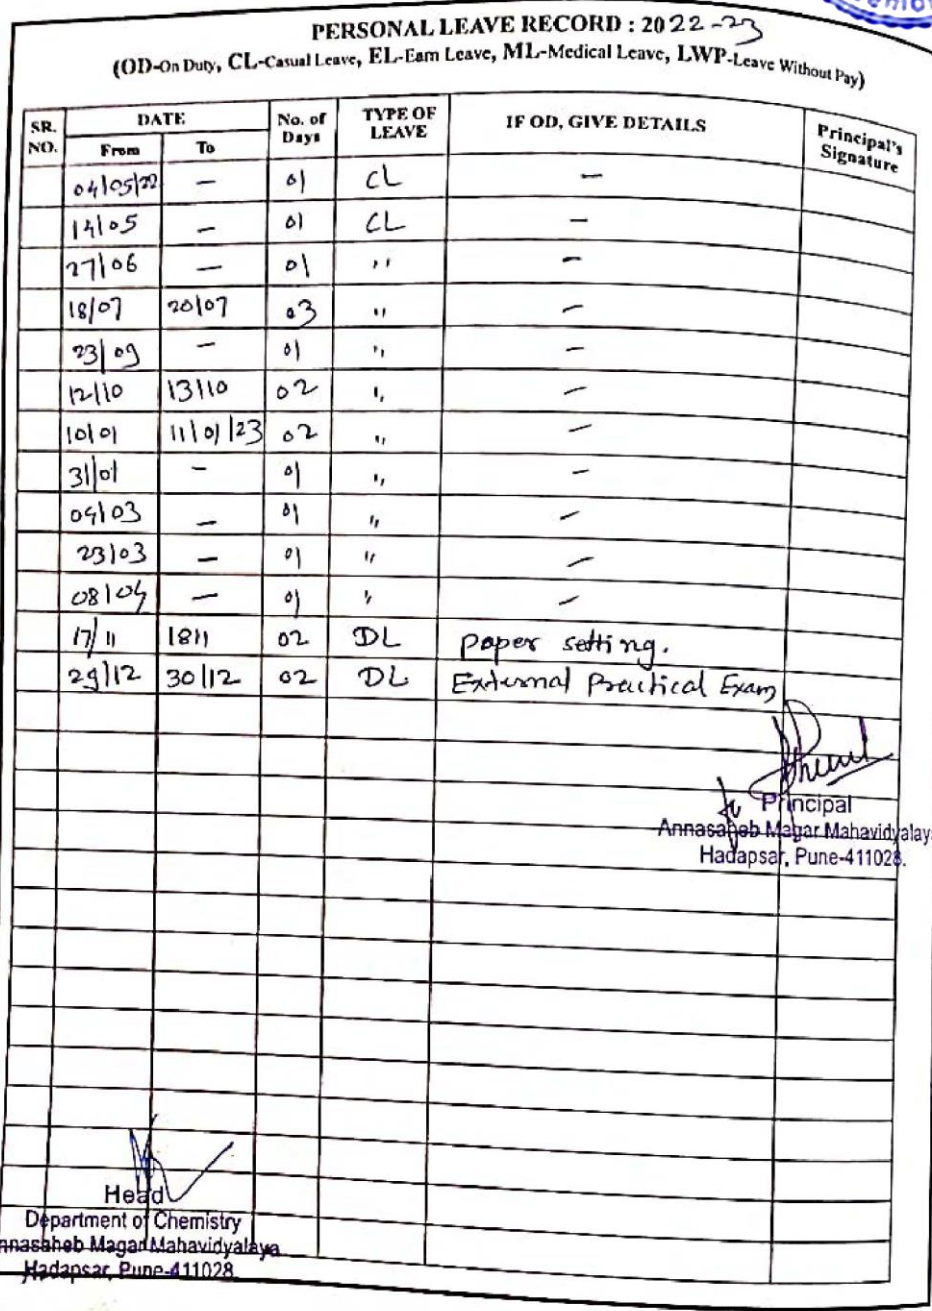 PERSONAL LEAVE RECORD : 2022-23
(OD-On Duty, CL-Casual Leave, EL-Earn Leave, ML-Medical Leave, LWP-Leave Without Pay)
SR. NO. DATE From To No. of Days TYPE OF LEAVE IF OD, GIVE DETAILS Principal's Signature
04/05/22 — 01 CL —
14/05 — 01 CL —
27/06 — 01 ,, —
18/07 20/07 03 ,, —
23/09 — 01 ,, —
12/10 13/10 02 ,, —
10/01 11/01/23 02 ,, —
31/01 — 01 ,, —
04/03 — 01 ,, —
23/03 — 01 ,, —
08/04 — 01 ,, —
17/11 18/11 02 DL paper setting.
29/12 30/12 02 DL External Practical Exam
Principal
Annasaheb Magar Mahavidyalay
Hadapsar, Pune-411028.
Head
Department of Chemistry
nnasaheb Magar Mahavidyalaya
Hadapsar, Pune-411028.